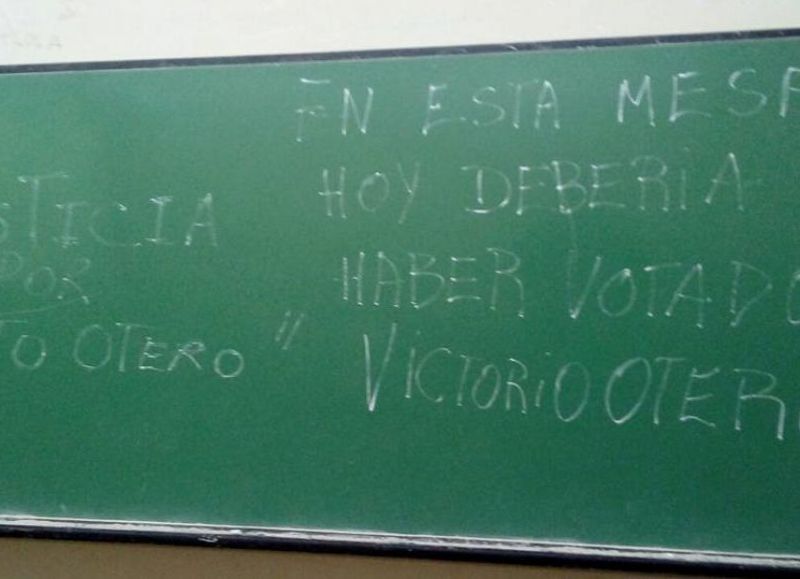 STICIA
POR
TO OTERO"
EN ESTA MESA
HOY DEBERIA
HABER VOTADO
VICTORIO OTERO